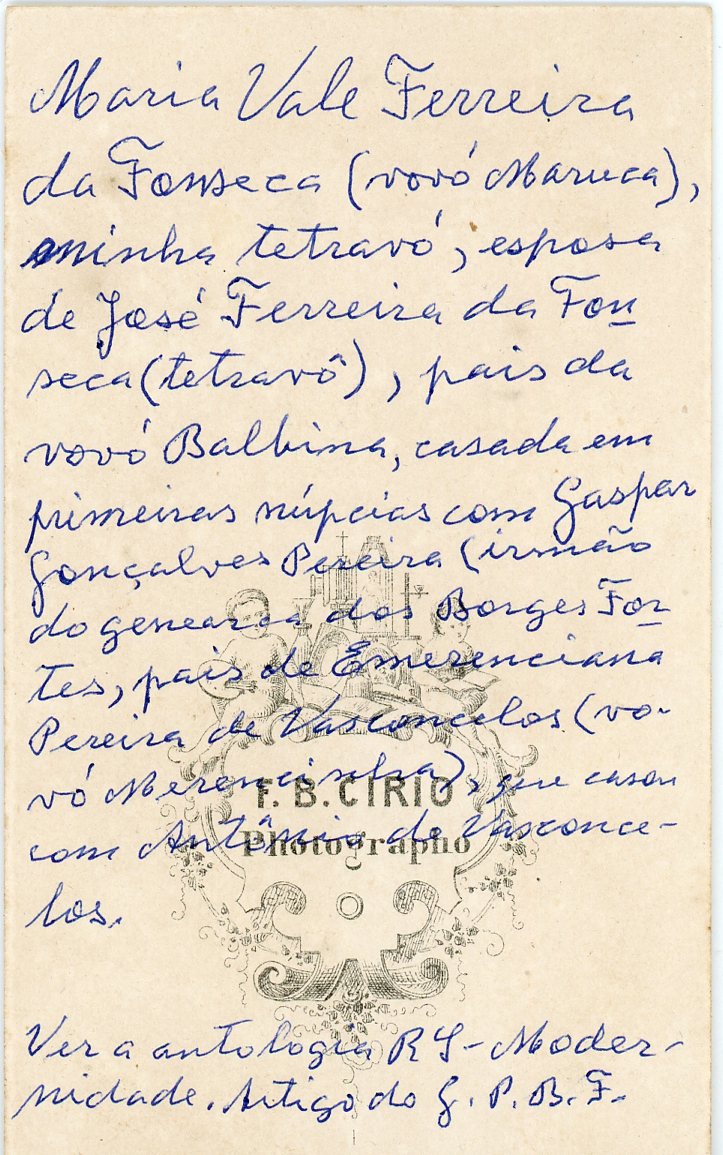 Maria Vale Ferreira
da Fonseca (vovó Maruca),
minha tetravó, esposa
de José Ferreira da Fon
seca (tetravô), pais da
vovó Balbina, casada em
primeiras núpcias com Gaspar
Gonçalves Pereira (irmão
do genearca dos Borges For
tes, pais de Emerenciana
Pereira de Vasconcelos (vo-
vó Merencia), que casou
F. B. CIRIO
com Antônio de Vasconce-
Photographo
los.
Ver a antologia RS-Moder-
nidade. Artigo do G. P. B. F.